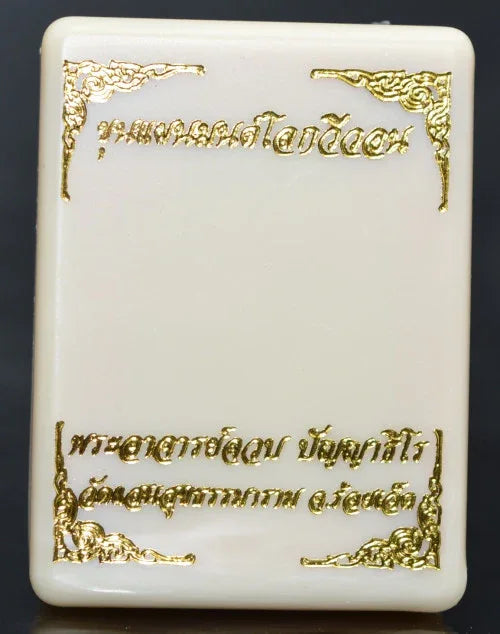 ขุนแผนมนต์โลกวีวอน
พระอาจารย์ลวบ ปัญญาสิโร
วัดแสนสุขธรรมาราม จ.ร้อยเอ็ด